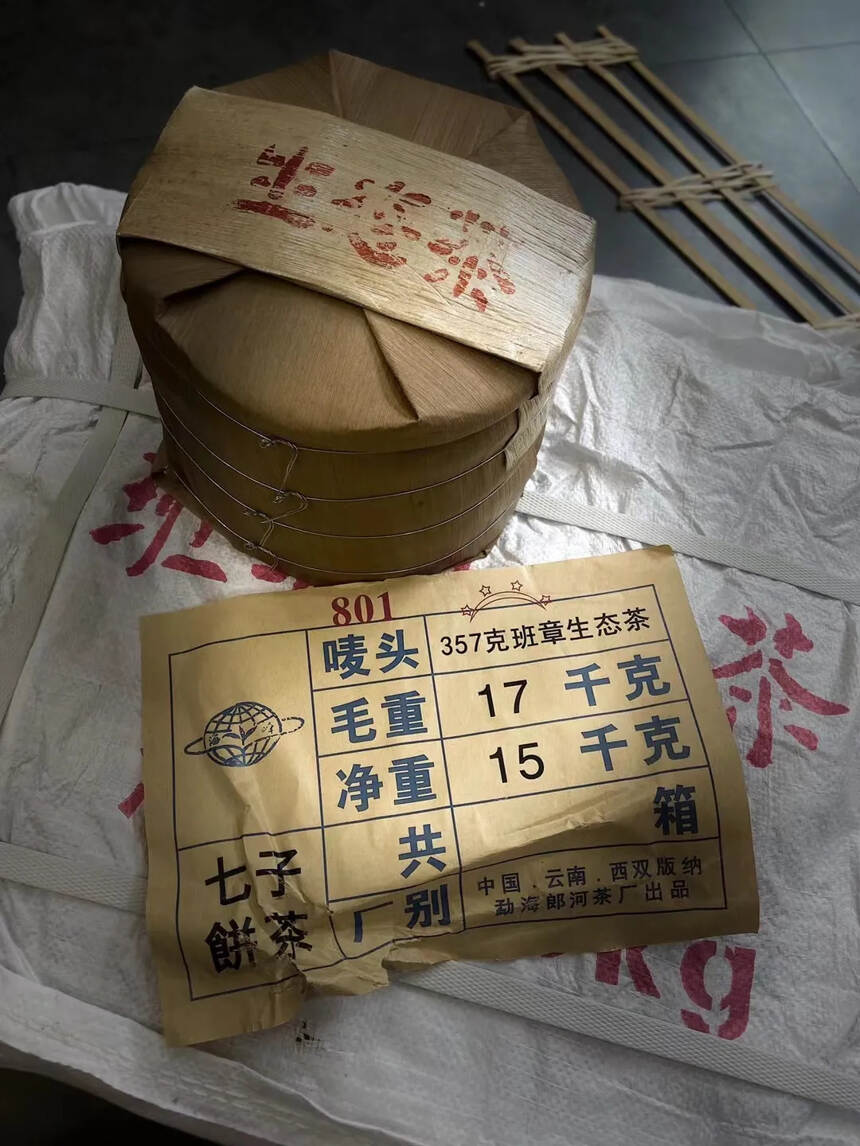 生态茶
班
茶
801
唛头
357克班章生态茶
毛重
17 千克
净重
15 千克
共
箱
七子
餅茶
厂别
中国.云南.西双版纳
勐海郎河茶厂出品
kg